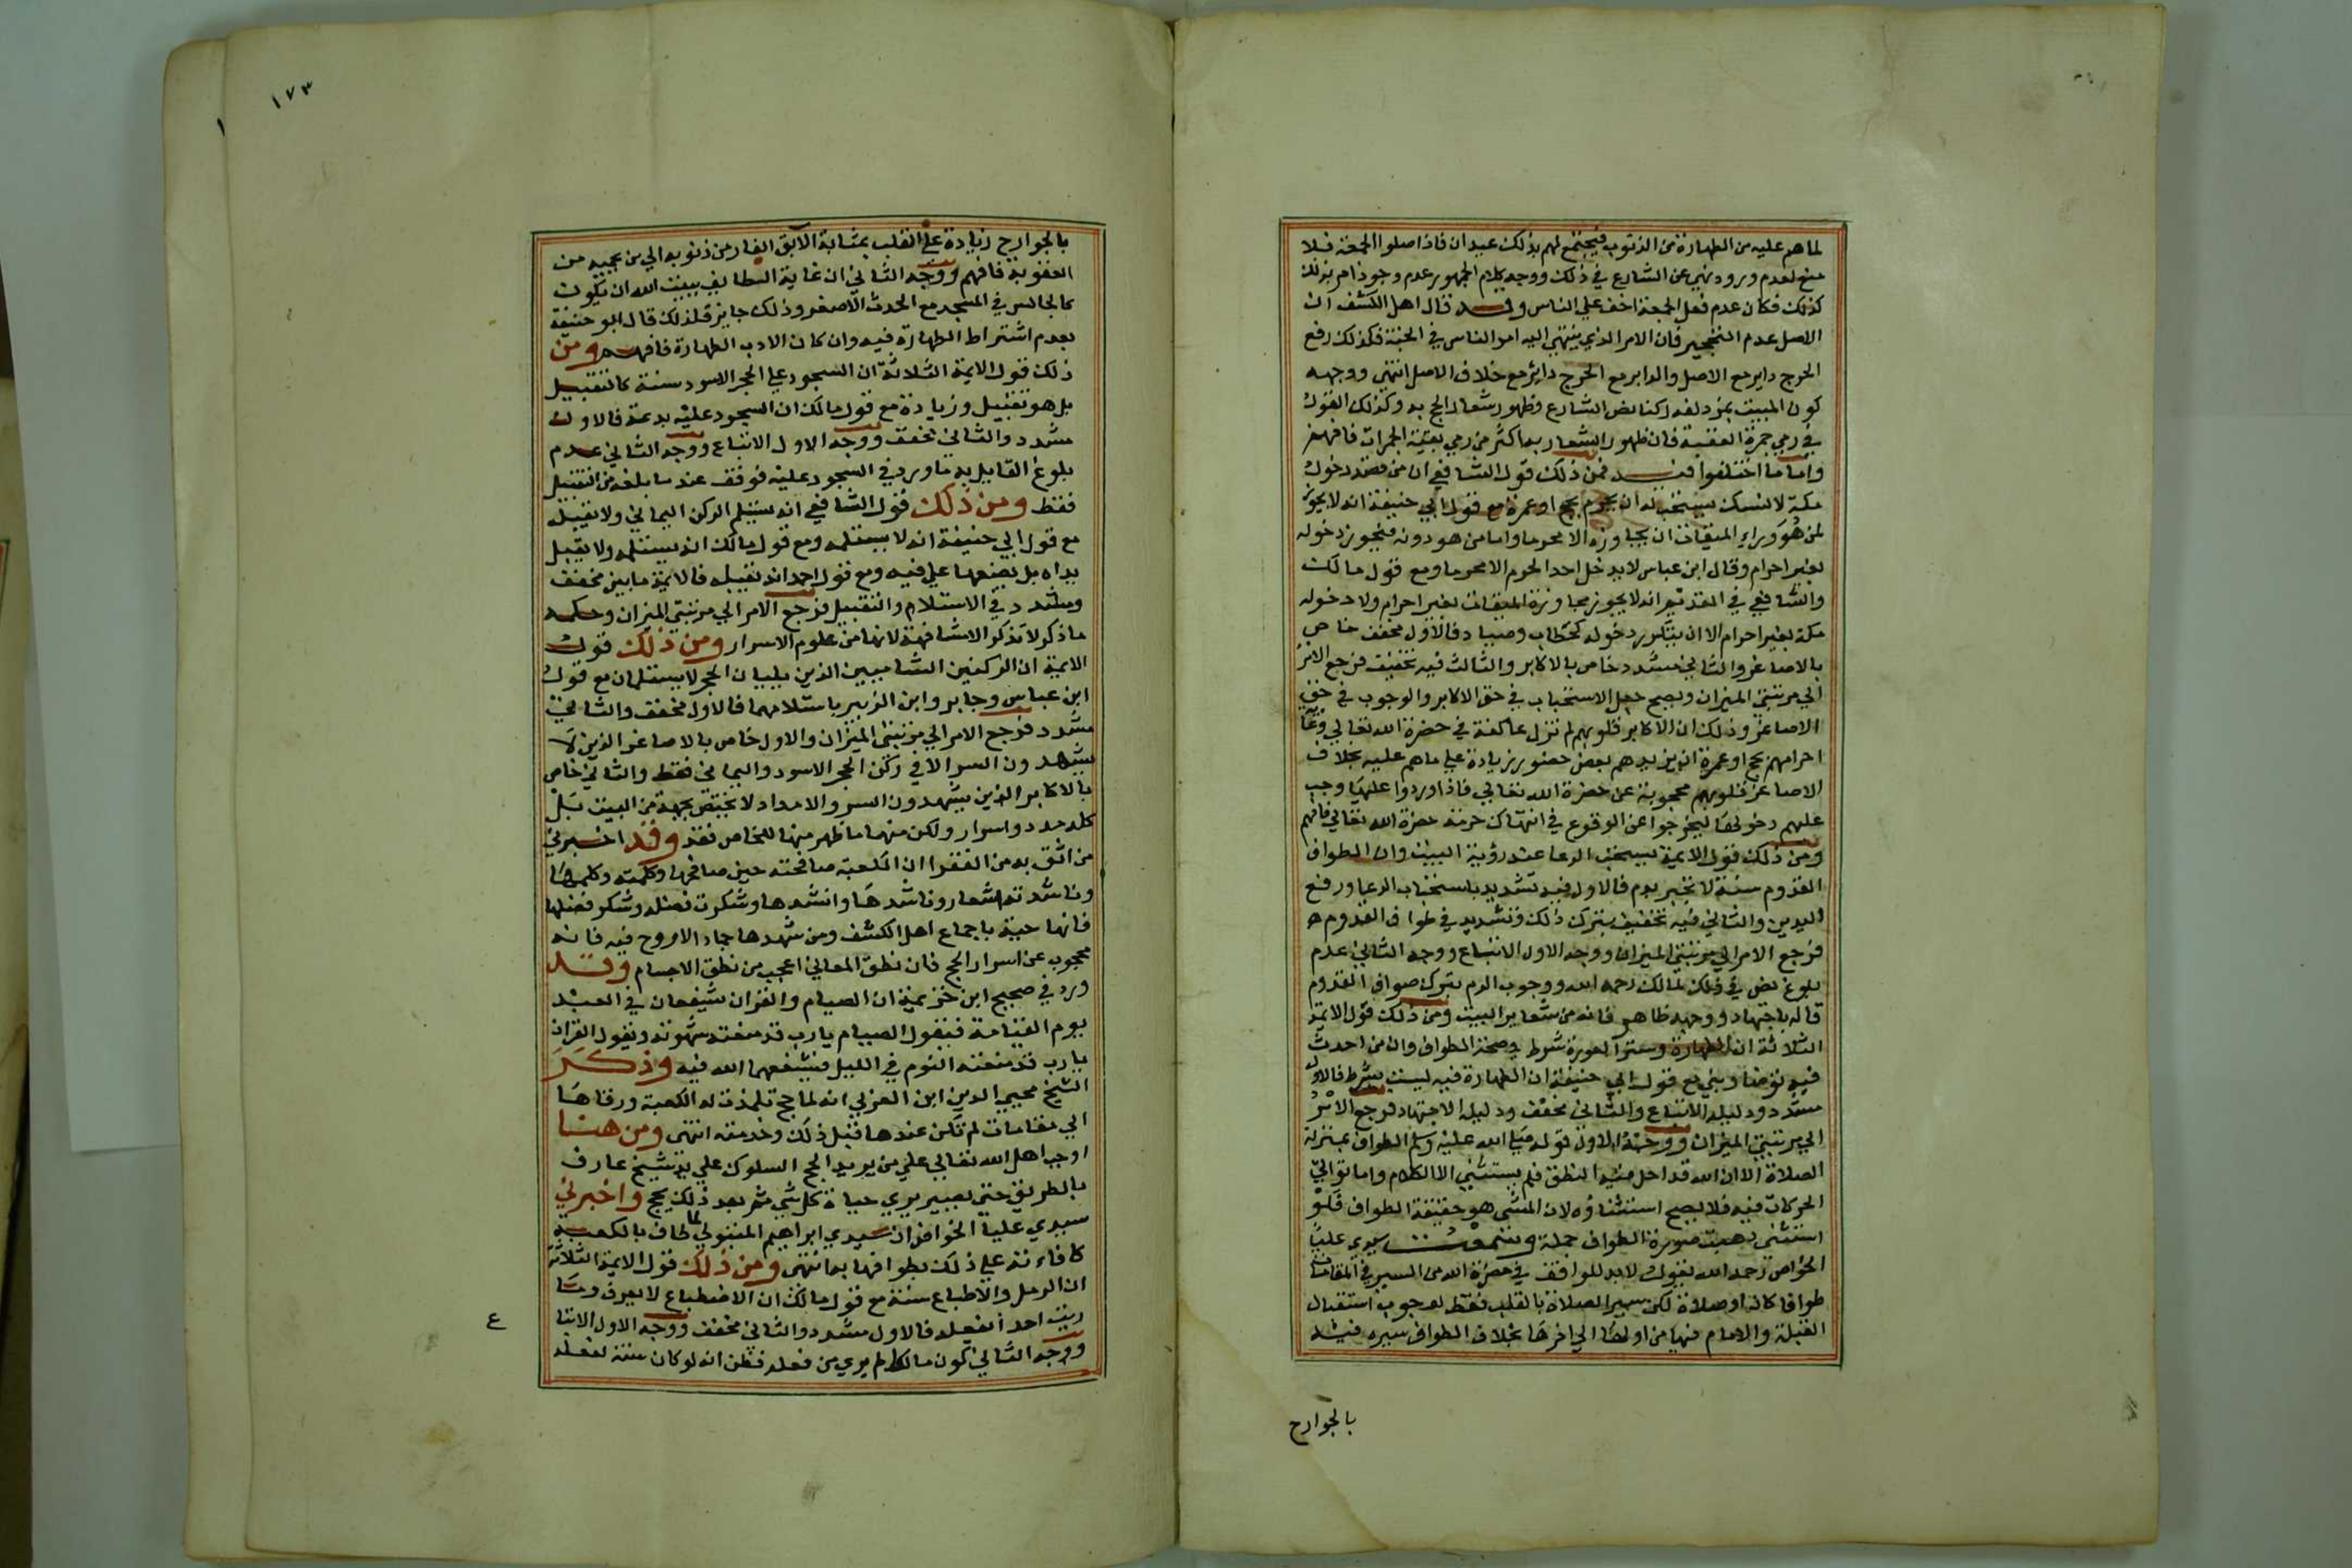 لما هم عليه من الطهارة من الذنوب فيجتمع لهم بذلك عيدان فاذا صلوا الجمعة فلا
منع لعدم ورود نهي عن الشارع في ذلك ووجه كلام الجمهور عدم وجود امر بذلك
كذلك فكان عدم فعل الجمعة اخف علي الناس وقد قال اهل الكشف ان
الاصل عدم التحجير فان الامر الذي ينتهي اليه امر الناس في الجنة فكذلك رفع
الحرج داير مع الاصل والداير مع الحرج داير مع خلاف الاصل انتهي ووجه
كون المبيت بمزدلفة ركنا نص الشارع وظهور شعار الحج به وكذلك القول
في رمي جمرة العقبة فان ظهور الشعار بها اكثر من رمي بقية الجمرات فافهم
واما ما اختلفوا فيه فمن ذلك قول الشافعي ان من قصد دخول
مكة لا لنسك يستحب له ان يحرم بحج او عمرة مع قول ابي حنيفة انه لا يجوز
لمن هو وراء الميقات ان يجاوزه الا محرما واما من هو دونه فيجوز دخوله
بغير احرام وقال ابن عباس لا يدخل احد الحرم الا محرما ومع قول مالك
والشافعي في القديم انه لا يجوز مجاوزة الميقات بغير احرام ولا دخول
مكة بغير احرام الا ان يتكرر دخوله كحطاب وصياد فالاول مخفف خاص
بالاصاغر والثاني مشدد خاص بالاكابر والثالث فيه تخفيف فرجع الامر
الي مرتبتي الميزان ويصح جعل الاستحباب في حق الاكابر والوجوب في حق
الاصاغر وذلك ان الاكابر قلوبهم لم تزل عاكفة في حضرة الله تعالي
احرامهم بحج او عمرة انما يزيدهم بعض حضور زيادة علي ما هم عليه بخلاف
الاصاغر قلوبهم محجوبة عن حضرة الله تعالي فاذا وردوا عليها وجب
عليهم دخولها ليخرجوا عن الوقوع في انتهاك حرمة حضرة الله تعالي فافهم
ومن ذلك قول الايمة يستحب الدعا عند رؤية البيت وان الطواف
القدوم سنة لا تجبر بدم فالاول فيه تشديد باستحباب الدعا ورفع
اليدين والثاني فيه تخفيف بترك ذلك وتشديد في طواف القدوم
فرجع الامر الي مرتبتي الميزان ووجه الاول الاتباع ووجه الثاني عدم
بلوغ نص في ذلك لمالك رحمه الله ووجوب الدم بترك طواف القدوم
قاله باجتهاد ووجهه ظاهر فانه من شعاير البيت ومن ذلك قول الايمة
الثلاثة ان الطهارة وستر العورة شرط في صحة الطواف وان من احدث
فيه توضا وبني مع قول ابي حنيفة ان الطهارة فيه ليست بشرط فالاول
مشدد ودليله الاتباع والثاني مخفف ودليله الاجتهاد فرجع الامر
الي مرتبتي الميزان ووجه الاول قوله صلي الله عليه وسلم الطواف بمنزلة
الصلاة الا ان الله قد احل فيه النطق فلم يستثني الا الكلام واما توالي
الحركات فيه فلا يصح استثناؤه لان المشي هو حقيقة الطواف فلو
استثني ذهبت صورة الطواف جملة وسمعت سيدي عليا
الخواص رحمه الله يقول لابد للواقف في حضرة الله من السير في المقامات
طوافا كان او صلاة لكن سير الصلاة بالقلب فقط لوجوب استقبال
القبلة والامام فيها من اولها الي اخرها بخلاف الطواف سيره فيه
بالجوارح
١٧٣
بالجوارح زيادة علي القلب بمثابة الابق الفار من ذنوبه الي من يحميه من
العقوبة فافهم ووجه الثاني ان غاية الطايف ببيت الله ان يكون
كالجالس في المسجد مع الحدث الاصغر وذلك جايز فلذلك قال ابو حنيفة
بعدم اشتراط الطهارة فيه وان كان الادب الطهارة فافهم ومن
ذلك قول الايمة الثلاثة ان السجود علي الحجر الاسود سنة كالتقبيل
بل هو تقبيل وزيادة مع قول مالك ان السجود عليه بدعة فالاول
مشدد والثاني مخفف ووجه الاول الاتباع ووجه الثاني عدم
بلوغ القايل به ما ورد في السجود عليه فوقف عند ما بلغه من التقبيل
فقط ومن ذلك قول الشافعي انه يستلم الركن اليماني ولا يقبله
مع قول ابي حنيفة انه لا يستلمه ومع قول مالك انه يستلمه ولا يقبل
يداه بل يضعها علي فيه ومع قول احمد انه يقبله فالايمة ما بين مخفف
ومشدد في الاستلام والتقبيل فرجع الامر الي مرتبتي الميزان وحكمة
ما ذكر لا تذكر الا مشافهة لانها من علوم الاسرار ومن ذلك قول
الايمة ان الركنين الشاميين الذين يليان الحجر لا يستلمان مع قول
ابن عباس وجابر وابن الزبير باستلامهما فالاول مخفف والثاني
مشدد فرجع الامر الي مرتبتي الميزان والاول خاص بالاصاغر الذين لا
يشهدون السر الا في ركن الحجر الاسود واليماني فقط والثاني خاص
بالاكابر الذين يشهدون السر والامداد لا يختص بجهة من البيت بل
كله مدد واسرار ولكن منهما ما ظهر منها للخاص فقد وقد اخبرني
من اثق به من الفقرا ان الكعبة صافحته حين صافحها وكلمته وكلمها
وناشدته اشعار وناشدها وانشدها وشكرت فضله وشكر فضلها
فانها حية باجماع اهل الكشف ومن شهدها جماد الا روح فيه فانه
محجوب عن اسرار الحج فان نطق المعاني اعجب من نطق الاجسام وقد
ورد في صحيح ابن خزيمة ان الصيام والقران شيفعان في العبد
يوم القيامة فيقول الصيام يارب قد منعته شهوته ويقول القران
يارب قد منعته النوم في الليل فيشفعهما الله فيه وذكر
الشيخ محيي الدين ابن العربي انه لما حج تلمذت له الكعبة ورقاها
الي مقامات لم تكن عندها قبل ذلك وخدمته انتهي ومن هنا
اوجب اهل الله تعالي علي من يريد الحج السلوك علي يد شيخ عارف
بالطريق حتي يصير يري حياة كل شي ثم بعد ذلك يحج واخبرني
سيدي عليا الخواص ان سيدي ابراهيم المتبولي لما طاف بالكعبة
كافاءته علي ذلك بطوافها به انتهي ومن ذلك قول الايمة الثلاثة
ان الرمل والاطباع سنة مع قول مالك ان الاضطباع لا يعرف وما
رايت احد يفعله فالاول مشدد والثاني مخفف ووجه الاول الاتبا
ع
ووجه الثاني كون مالكا لم يري من فعله فظن انه لو كان سنة لفعله